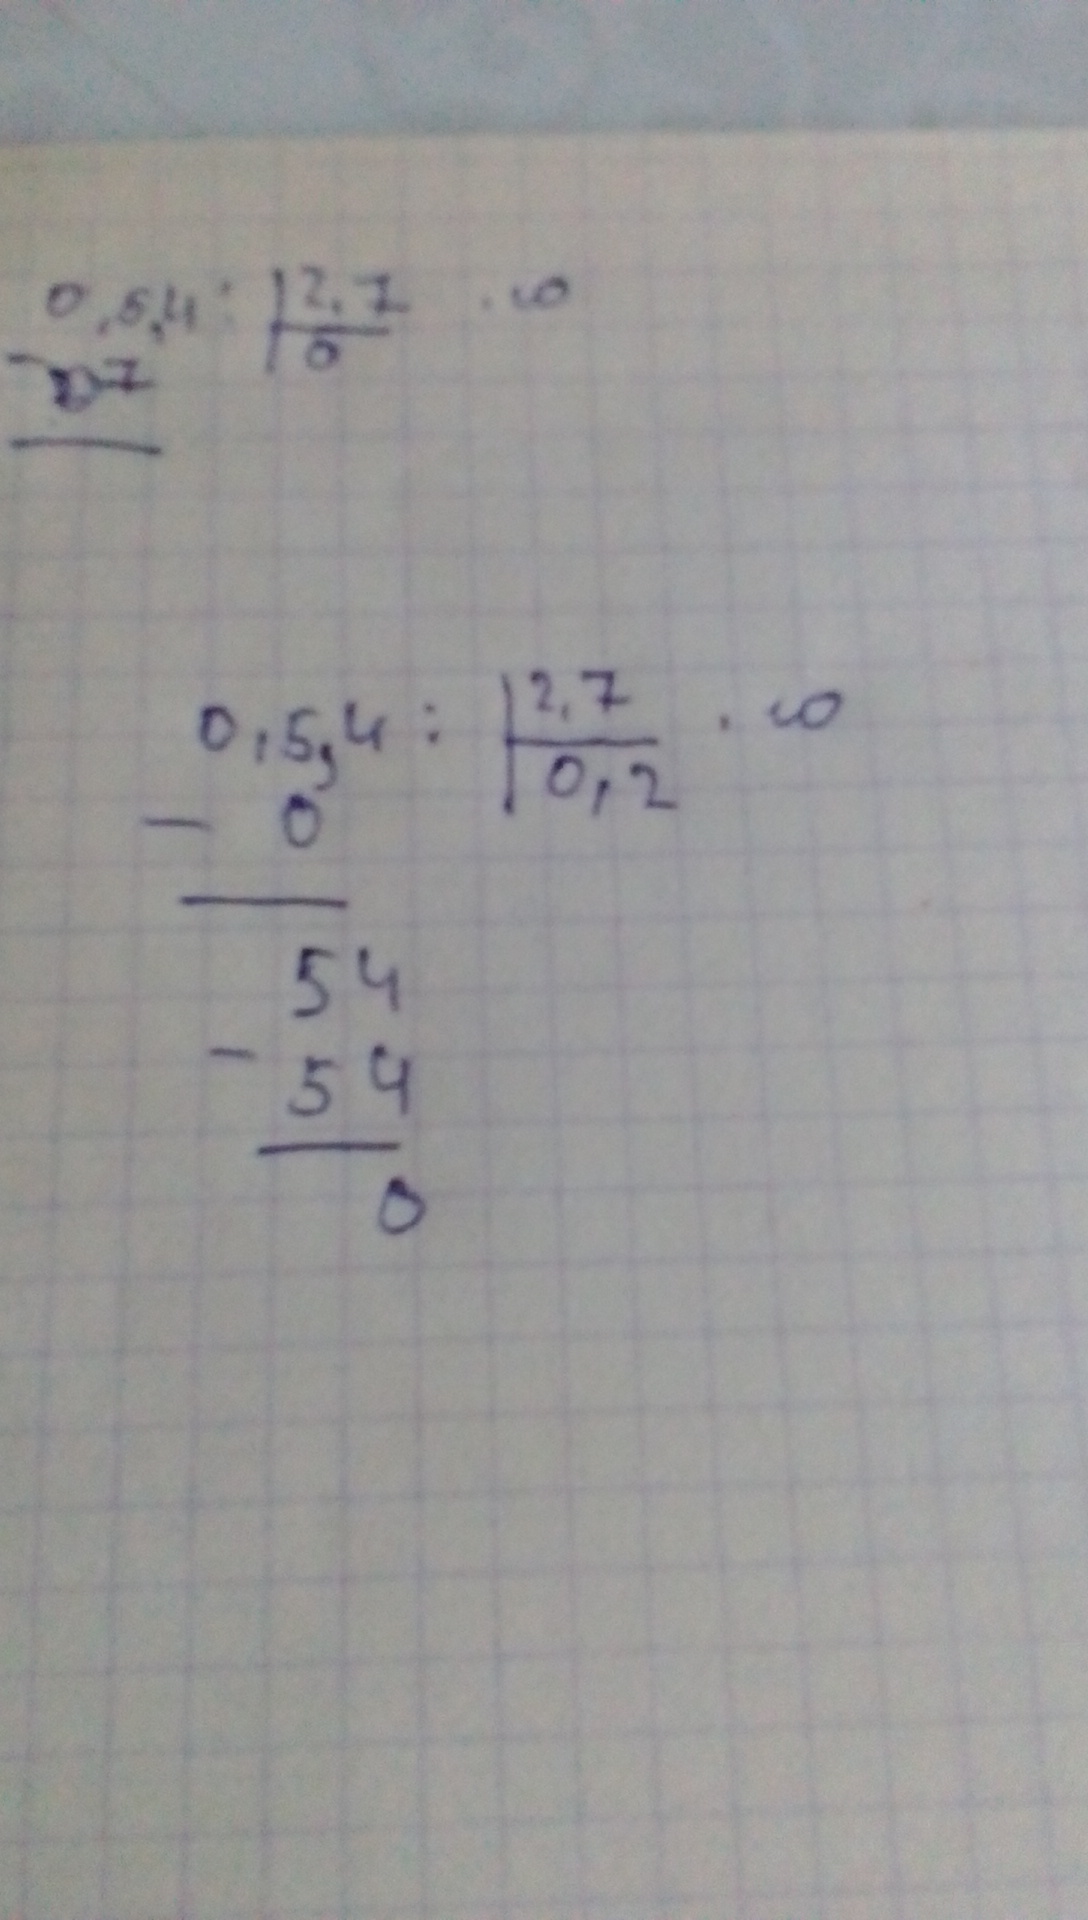 0,5,4: 2,7 . ∞
- 27 0
0,5,4: 2,7 . ∞
- 0 0,2
54
- 54
0